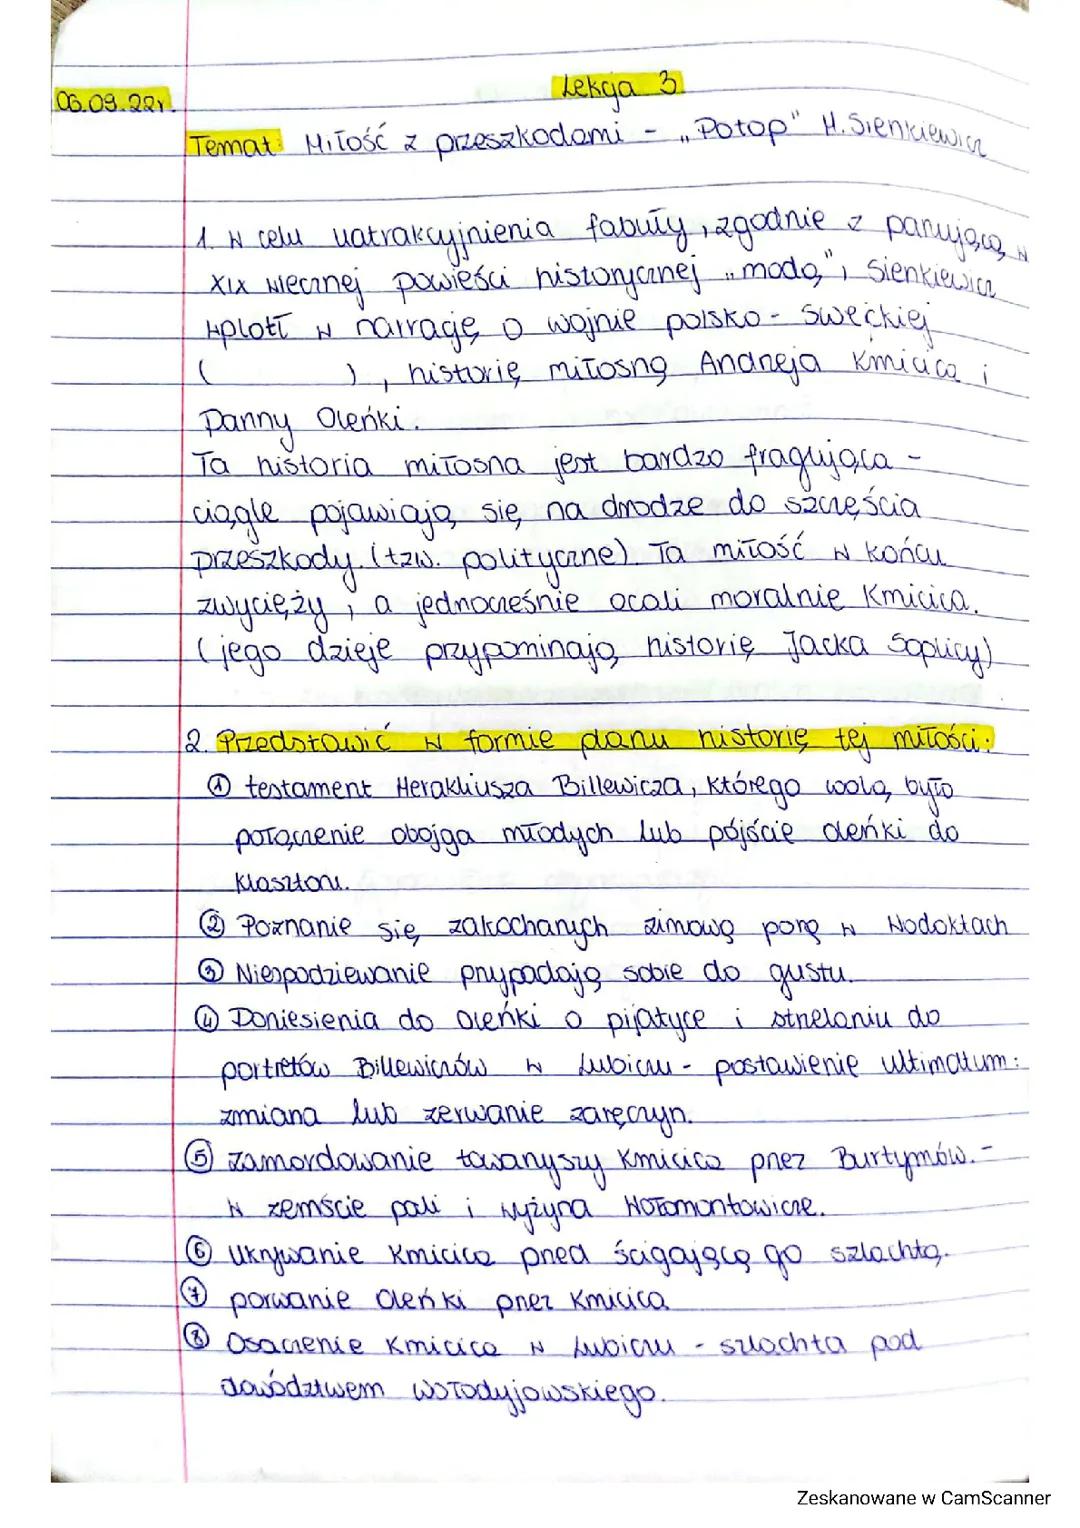 Lekcja 3
06.09.22r.
Temat: Miłość z przeszkodami - "Potop" H. Sienkiewicz
1. W celu uatrakcyjnienia fabuły, zgodnie z panującą w
XIX wiecznej powieści historycznej "modą", Sienkiewicz
wplótł w narrację o wojnie polsko - swęckiej
( ), historię miłosną Andrzeja Kmicica i
Panny Oleńki.
Ta historia miłosna jest bardzo fragująca -
ciągle pojawiają się na drodze do szczęścia
przeszkody. (tzw. polityczne). Ta miłość w końcu
zwycięży, a jednocześnie ocali moralnie Kmicica.
(jego dzieje przypominają historię Jacka Soplicy)
2. Przedstawić w formie planu historię tej miłości.
① testament Herakliusza Billewicza, którego wolą było
połączenie obojga młodych lub pójście Oleńki do
klasztoru.
② Poznanie się zakochanych zimową porą w Wodoktach
③ Niespodziewanie przypadają sobie do gustu.
④ Doniesienia do Oleńki o pijatyce i strzelaniu do
portretów Billewiczów w Lubiczu - postawienie ultimatum:
zmiana lub zerwanie zaręczyn.
⑤ Zamordowanie towarzyszy Kmicica przez Burtymów. -
w zemście pali i wyżyna Wołomontowicze.
⑥ Ukrywanie Kmicica przed ścigającą go szlachtą.
⑦ porwanie Oleńki przez Kmicica
⑧ Osaczenie Kmicica w Lubiczu - szlachta pod
dowództwem Wołodyjowskiego.
Zeskanowane w CamScanner